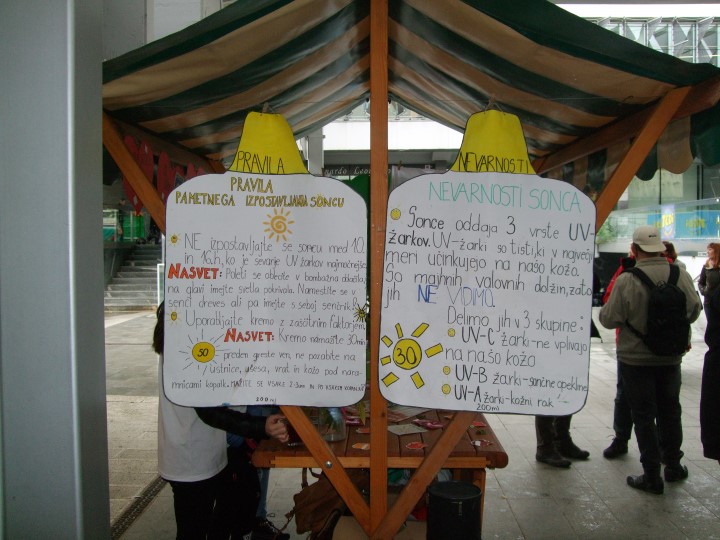 PRAVILA
PRAVILA
PAMETNEGA IZPOSTAVLJANJA SONCU
NE izpostavljajte se soncu med 10.
in 16.h, ko je sevanje UV žarkov najmočnejše
NASVET: Poleti se oblecite v bombažna oblačila,
na glavi imejte svetlo pokrivalo. Namestite se v
senco drevesa ali pa imejte s seboj senčnik.
Uporabljajte kremo z zaščitnim faktorjem
50
NASVET: Kremo namažite 30min
preden greste ven, ne pozabite na
ustnice, ušesa, vrat in kožo pod nara-
mnicami kopalk. MAŽITE SE VSAKI 2 uri IN PO VSAKEM KOPANJU
200ml
NEVARNOSTI
NEVARNOSTI SONCA
Sonce oddaja 3 vrste UV-
žarkov. UV-žarki so tisti, ki v največji
meri učinkujejo na našo kožo.
So majhnih valovnih dolžin, zato
jih NE VIDIMO.
Delimo jih v 3 skupine:
30
UV-C žarki-ne vplivajo
na našo kožo
UV-B žarki-sončne opekline
UV-A žarki-kožni rak
200ml